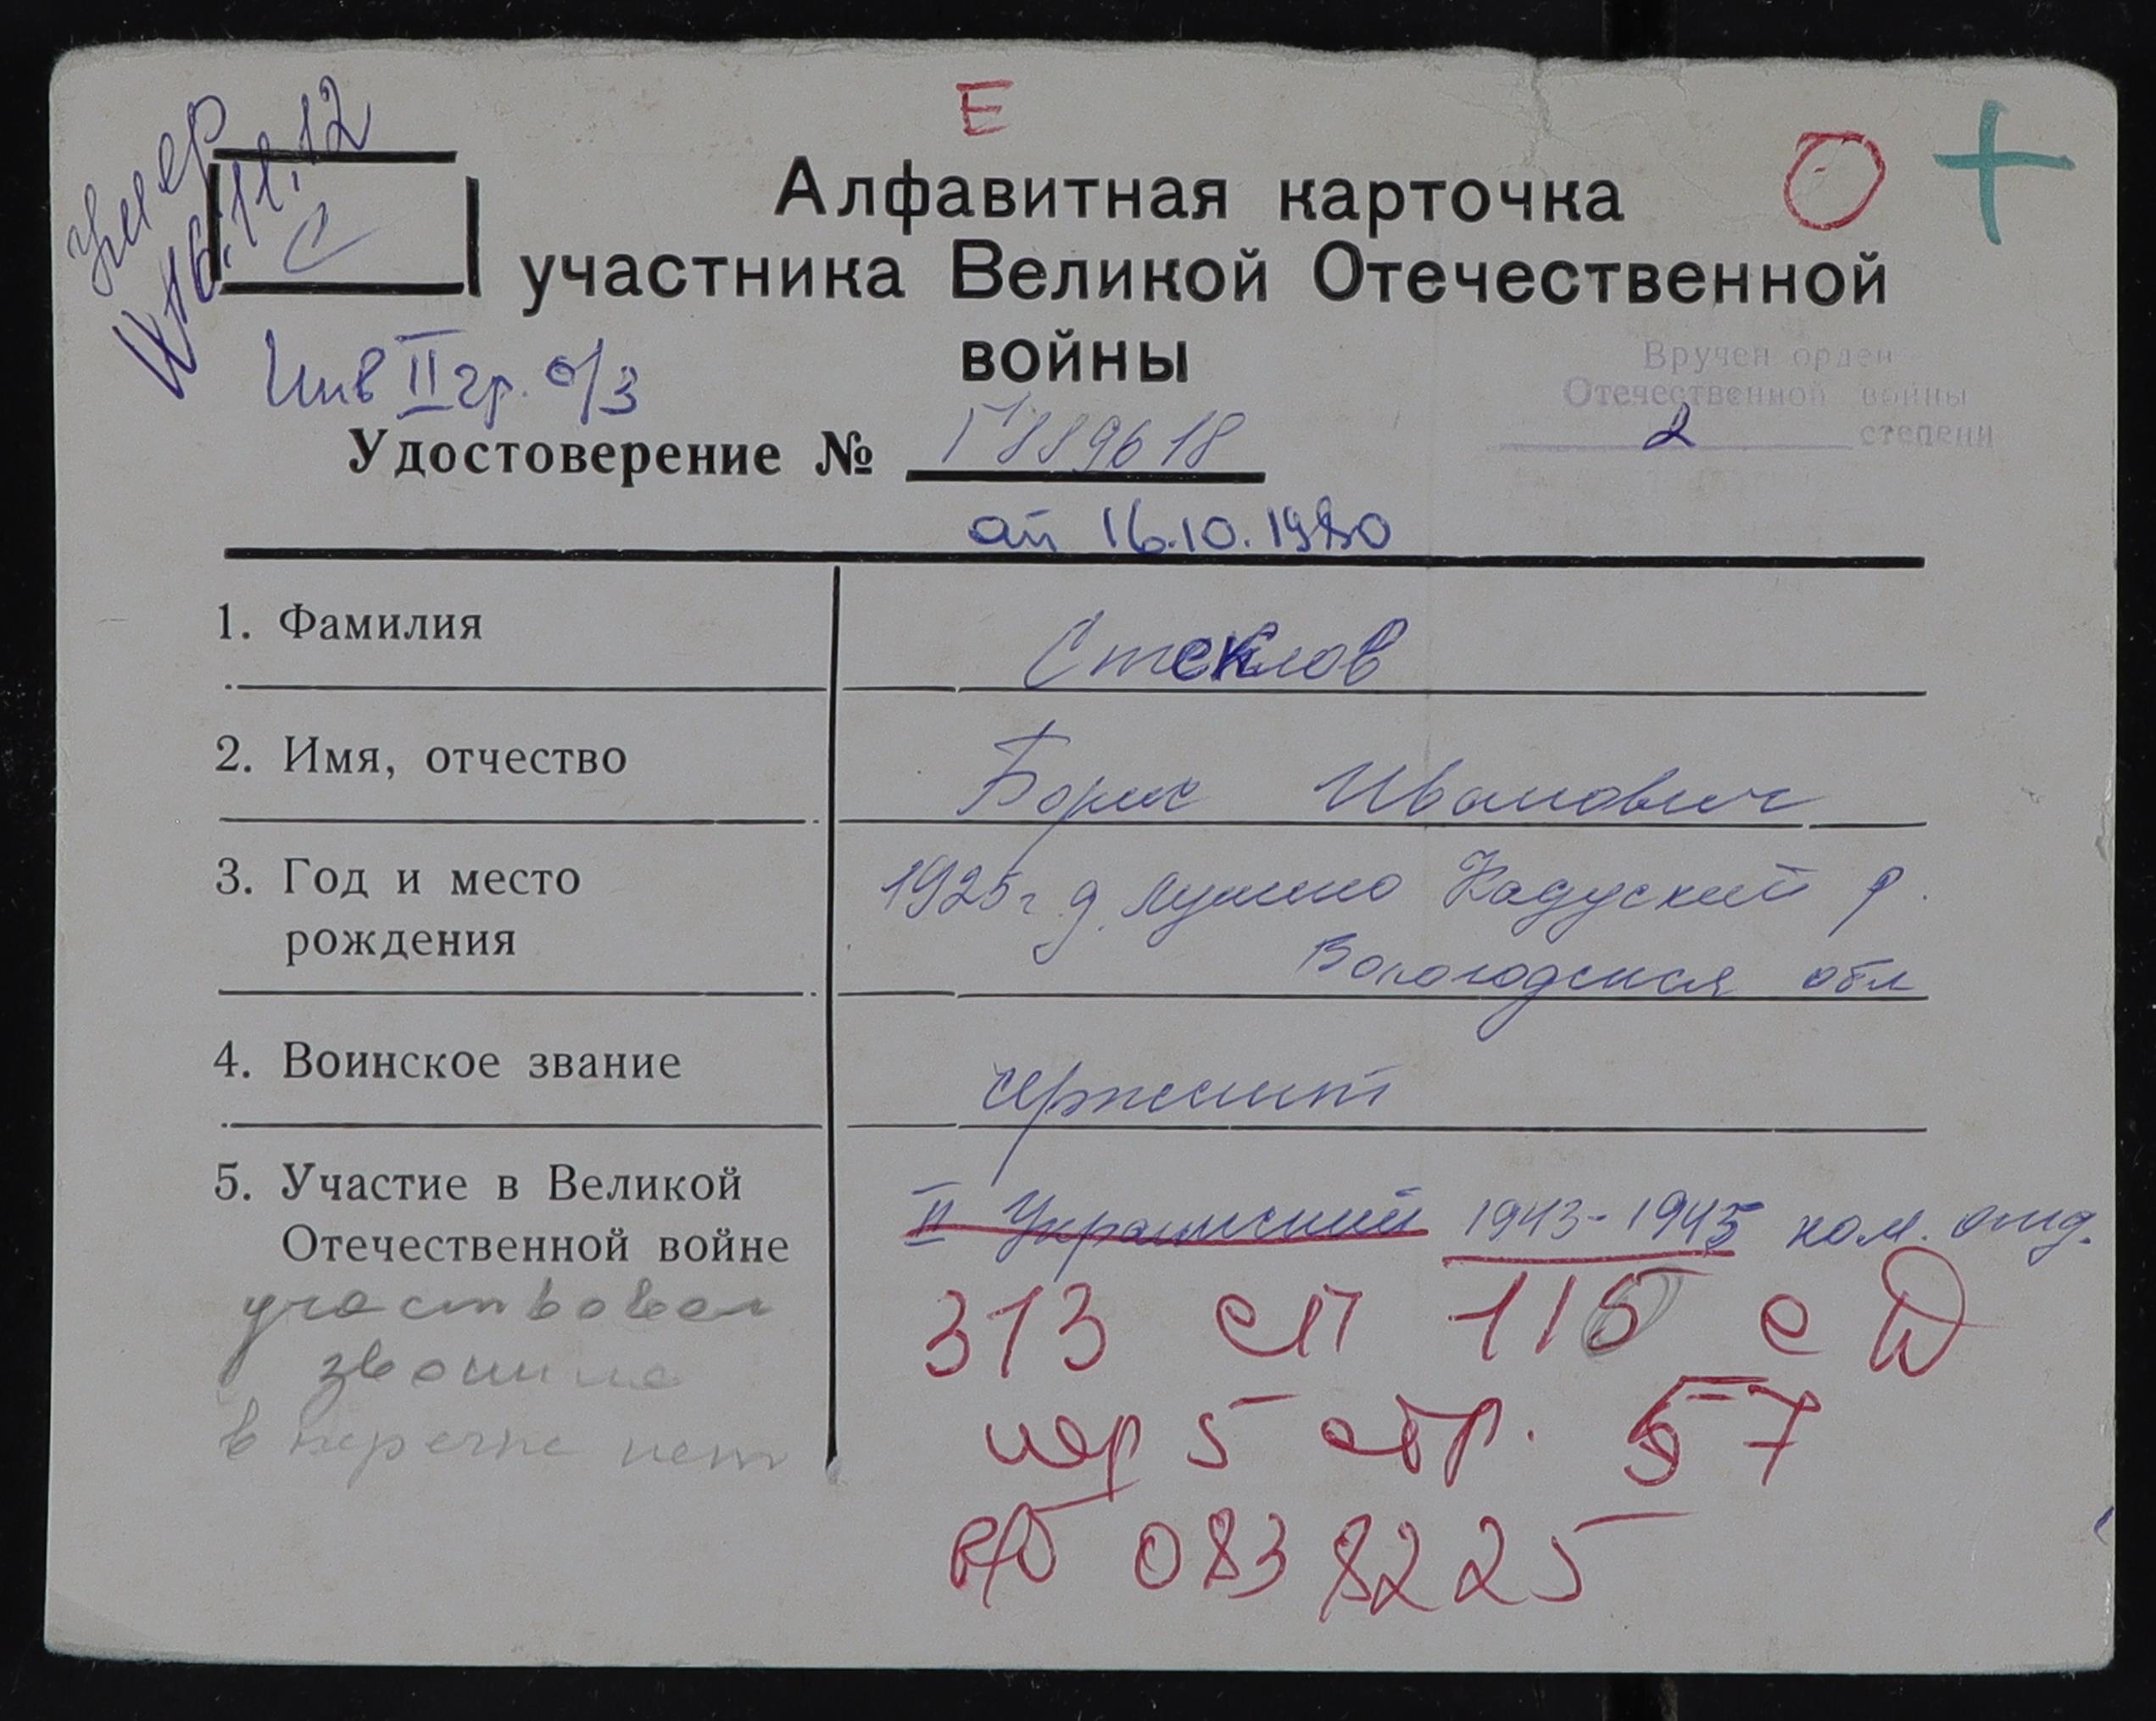 Е
умер
16.11.12
С
О +
Алфавитная карточка
участника Великой Отечественной
войны
Инв II гр. о/з
Вручен орден
Отечественной войны
2 степени
Удостоверение № Г 889618
ап 16.10.1980
1. Фамилия Стеклов
2. Имя, отчество Борис Иванович
3. Год и место 1925 г д. Кадуский р.
рождения Вологодская обл
4. Воинское звание сержант
5. Участие в Великой II Украинский 1943-1945 ком. отд.
Отечественной войне
участвовал 313 сп 115 с д
звонила
в перечне нет пер 5 абр. 57
в/б 0838225